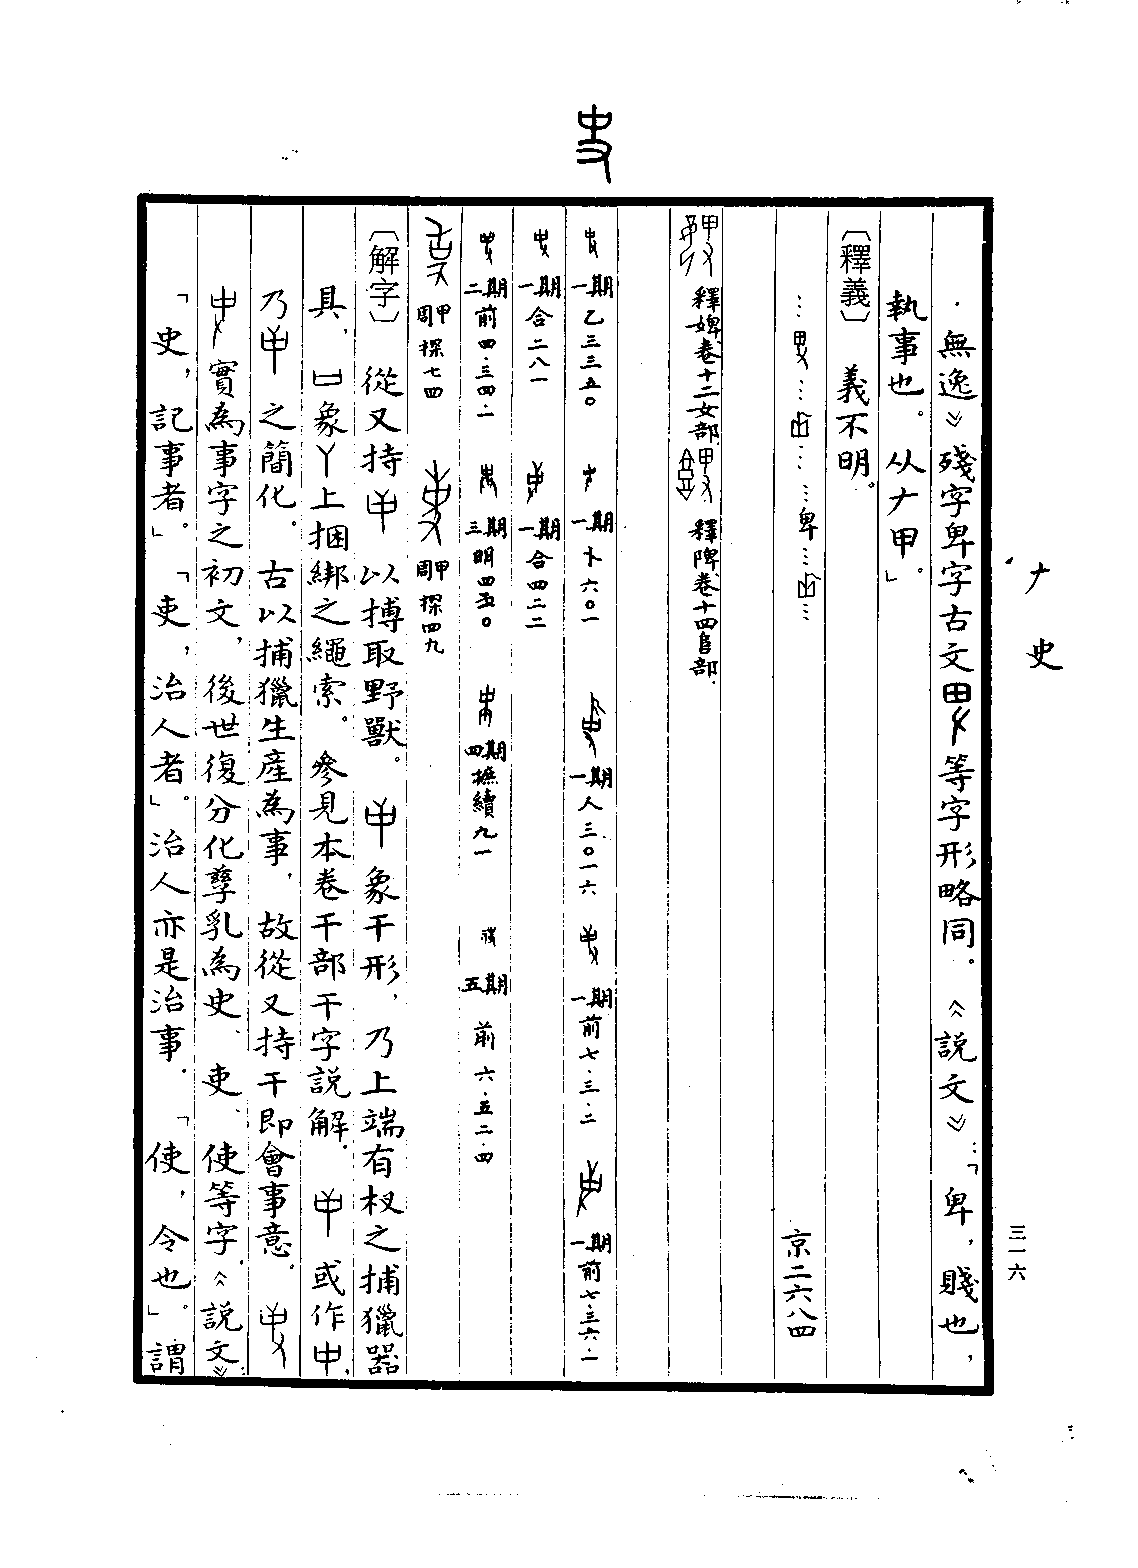 史
𠂇 史
三一六
·無逸》殘字卑字古文等字形略同。《說文》：「卑，賤也，
執事也。从𠂇甲。」
〔釋義〕 義不明。
…卑…𠙹……卑…𠙹… 京二六八四
釋婢卷十二女部 釋陴卷十四𨸏部
一期乙三三五〇 一期卜六〇一 一期人三〇一六 一期前七·三·二 一期前七·三六·一
一期合二八一 一期合四二二
二期前四·三四·一 三期明四五〇 四期摭續九一 五期前六·五二·四
周甲探七四 周甲探四九
〔解字〕 從又持 以搏取野獸。 象干形，乃上端有杈之捕獵器
具，口象丫上捆綁之繩索。參見本卷干部干字說解。 或作中，
乃 之簡化。古以捕獵生產為事，故從又持干即會事意。
實為事字之初文，後世復分化孳乳為史、吏、使等字。《說文》：
「史，記事者。」「吏，治人者」。治人亦是治事。「使，令也」。謂